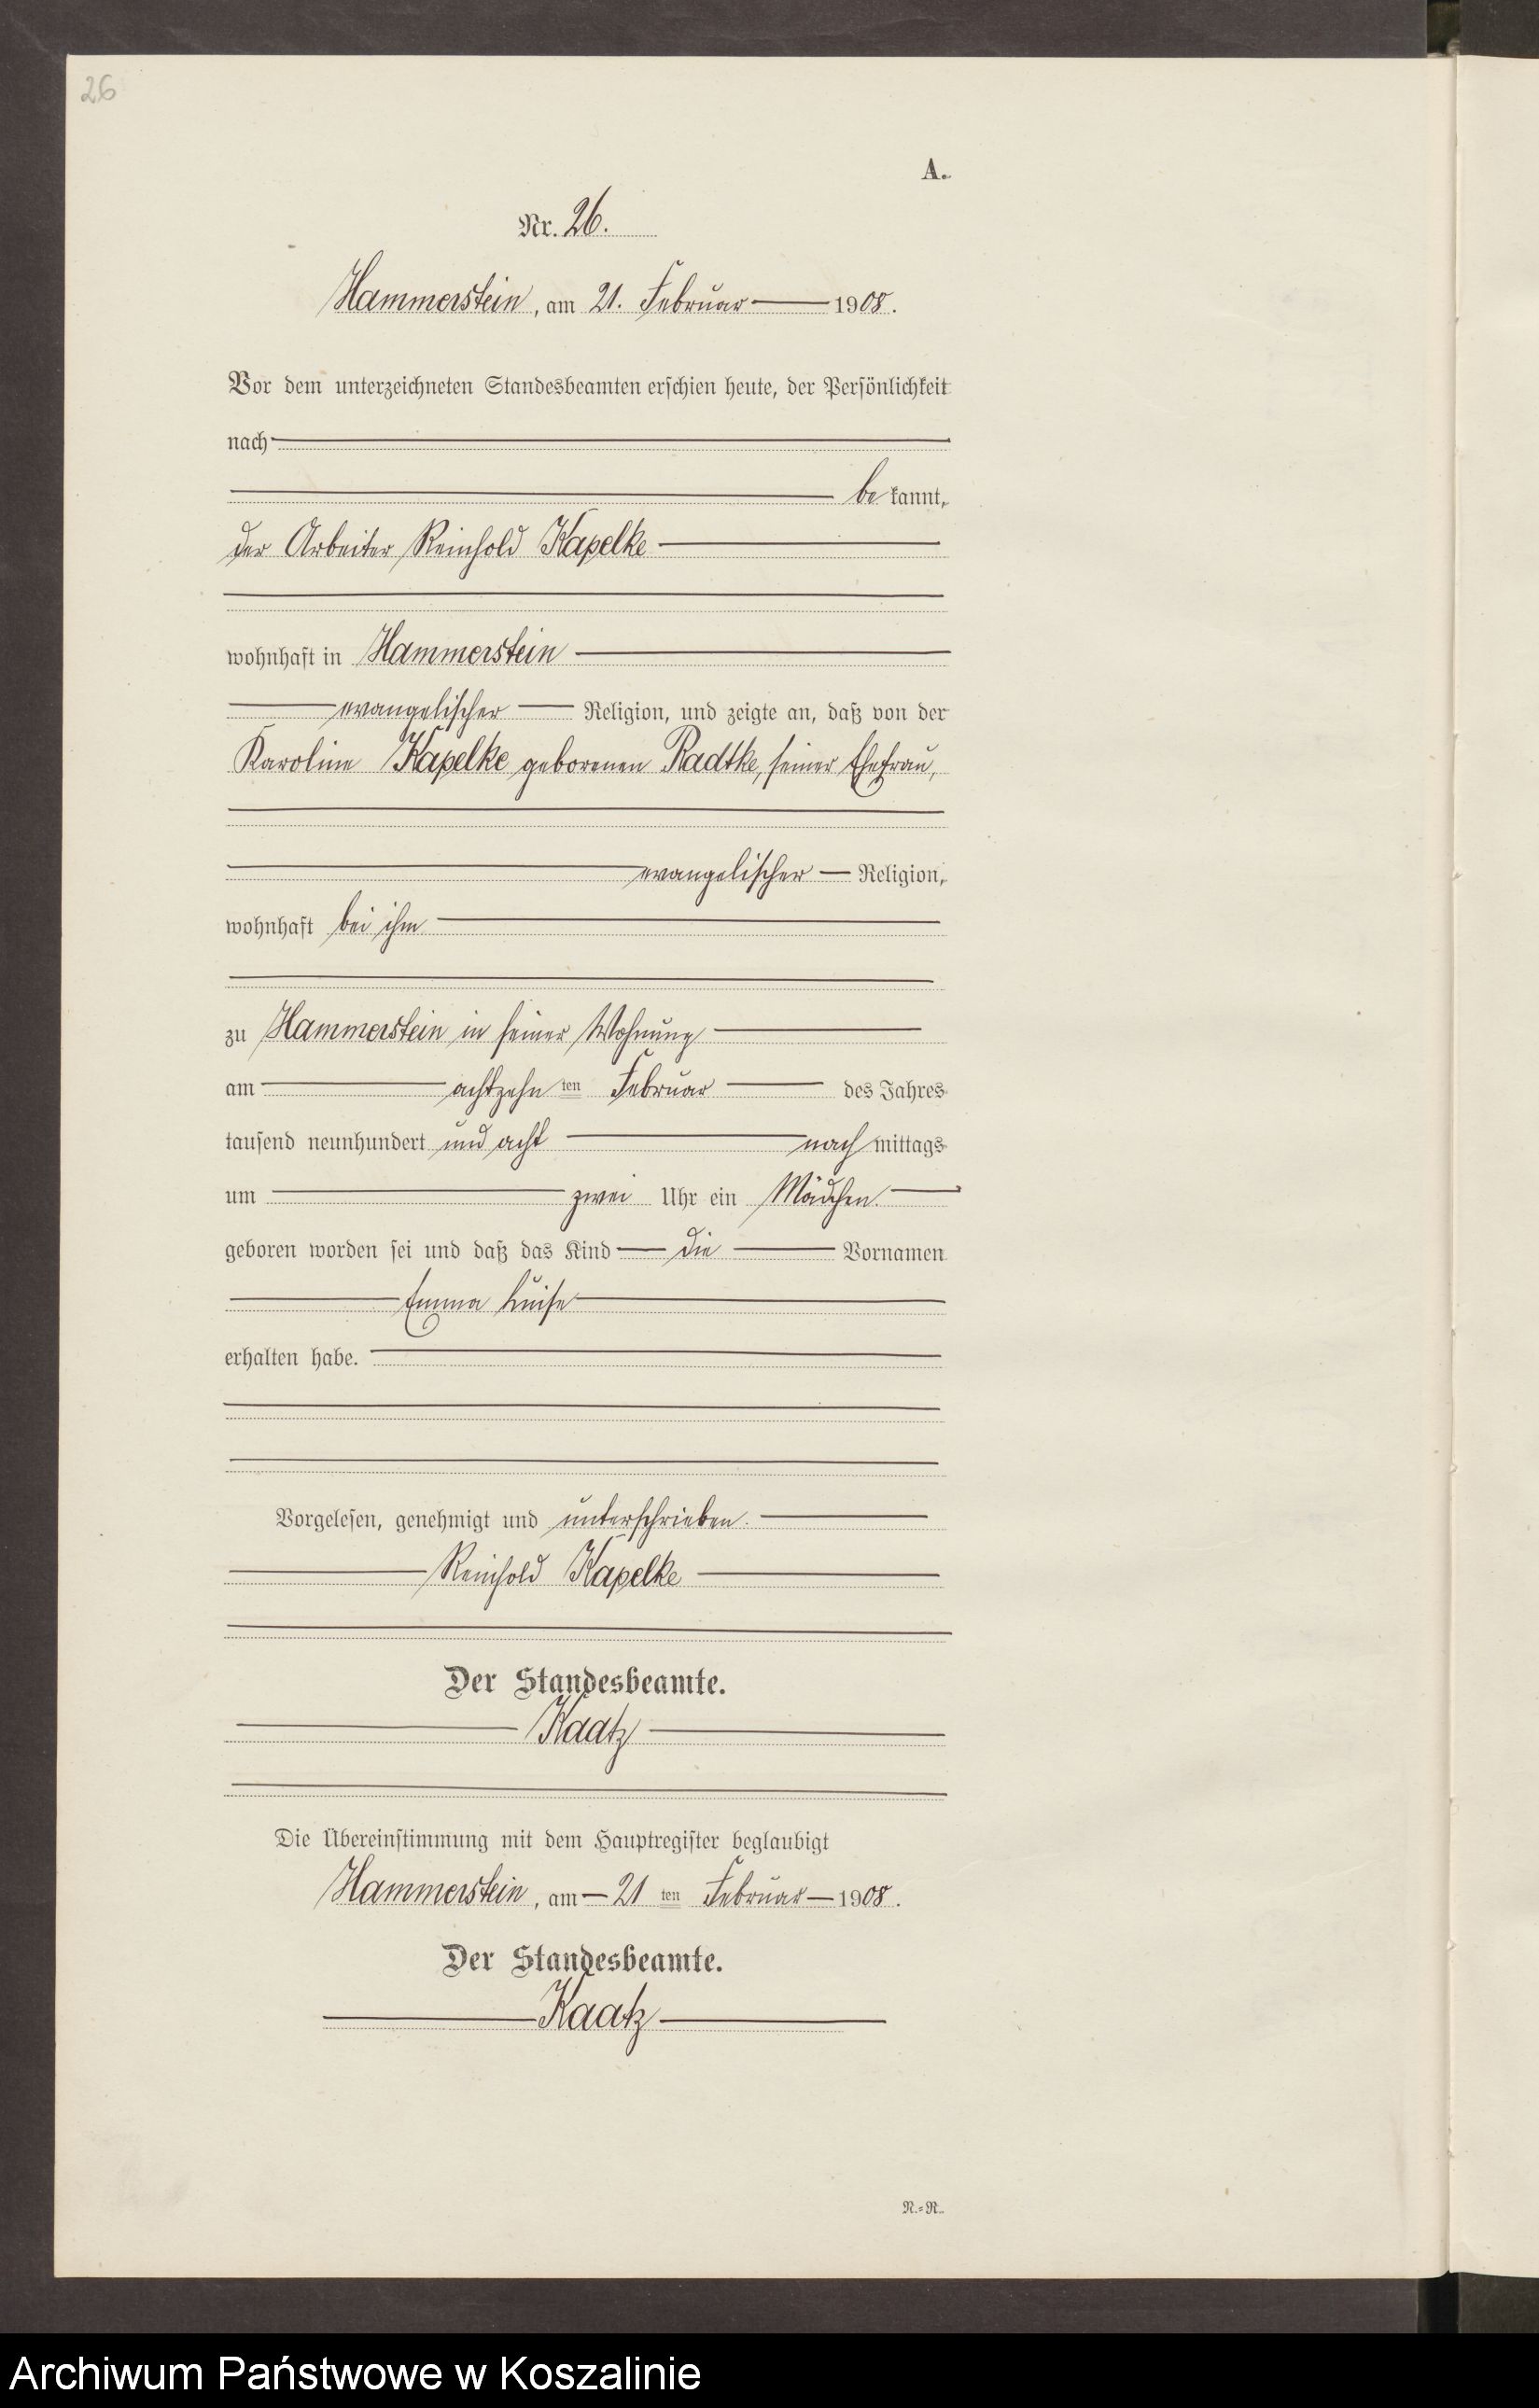 26
A.
Nr. 26.
Hammerstein, am 21. Februar 1908.
Vor dem unterzeichneten Standesbeamten erschien heute, der Persönlichkeit
nach
be kannt,
der Arbeiter Reinhold Kapelke
wohnhaft in Hammerstein
evangelischer Religion, und zeigte an, daß von der
Karoline Kapelke geborenen Radtke, seiner Ehefrau,
evangelischer Religion,
wohnhaft bei ihm
zu Hammerstein in seiner Wohnung
am achtzehn ten Februar des Jahres
tausend neunhundert und acht nach mittags
um zwei Uhr ein Mädchen.
geboren worden sei und daß das Kind die Vornamen
Emma Luise
erhalten habe.
Vorgelesen, genehmigt und unterschrieben.
Reinhold Kapelke
Der Standesbeamte.
Kaatz
Die Übereinstimmung mit dem Hauptregister beglaubigt
Hammerstein, am 21 ten Februar 1908.
Der Standesbeamte.
Kaatz
N.=R.
Archiwum Państwowe w Koszalinie